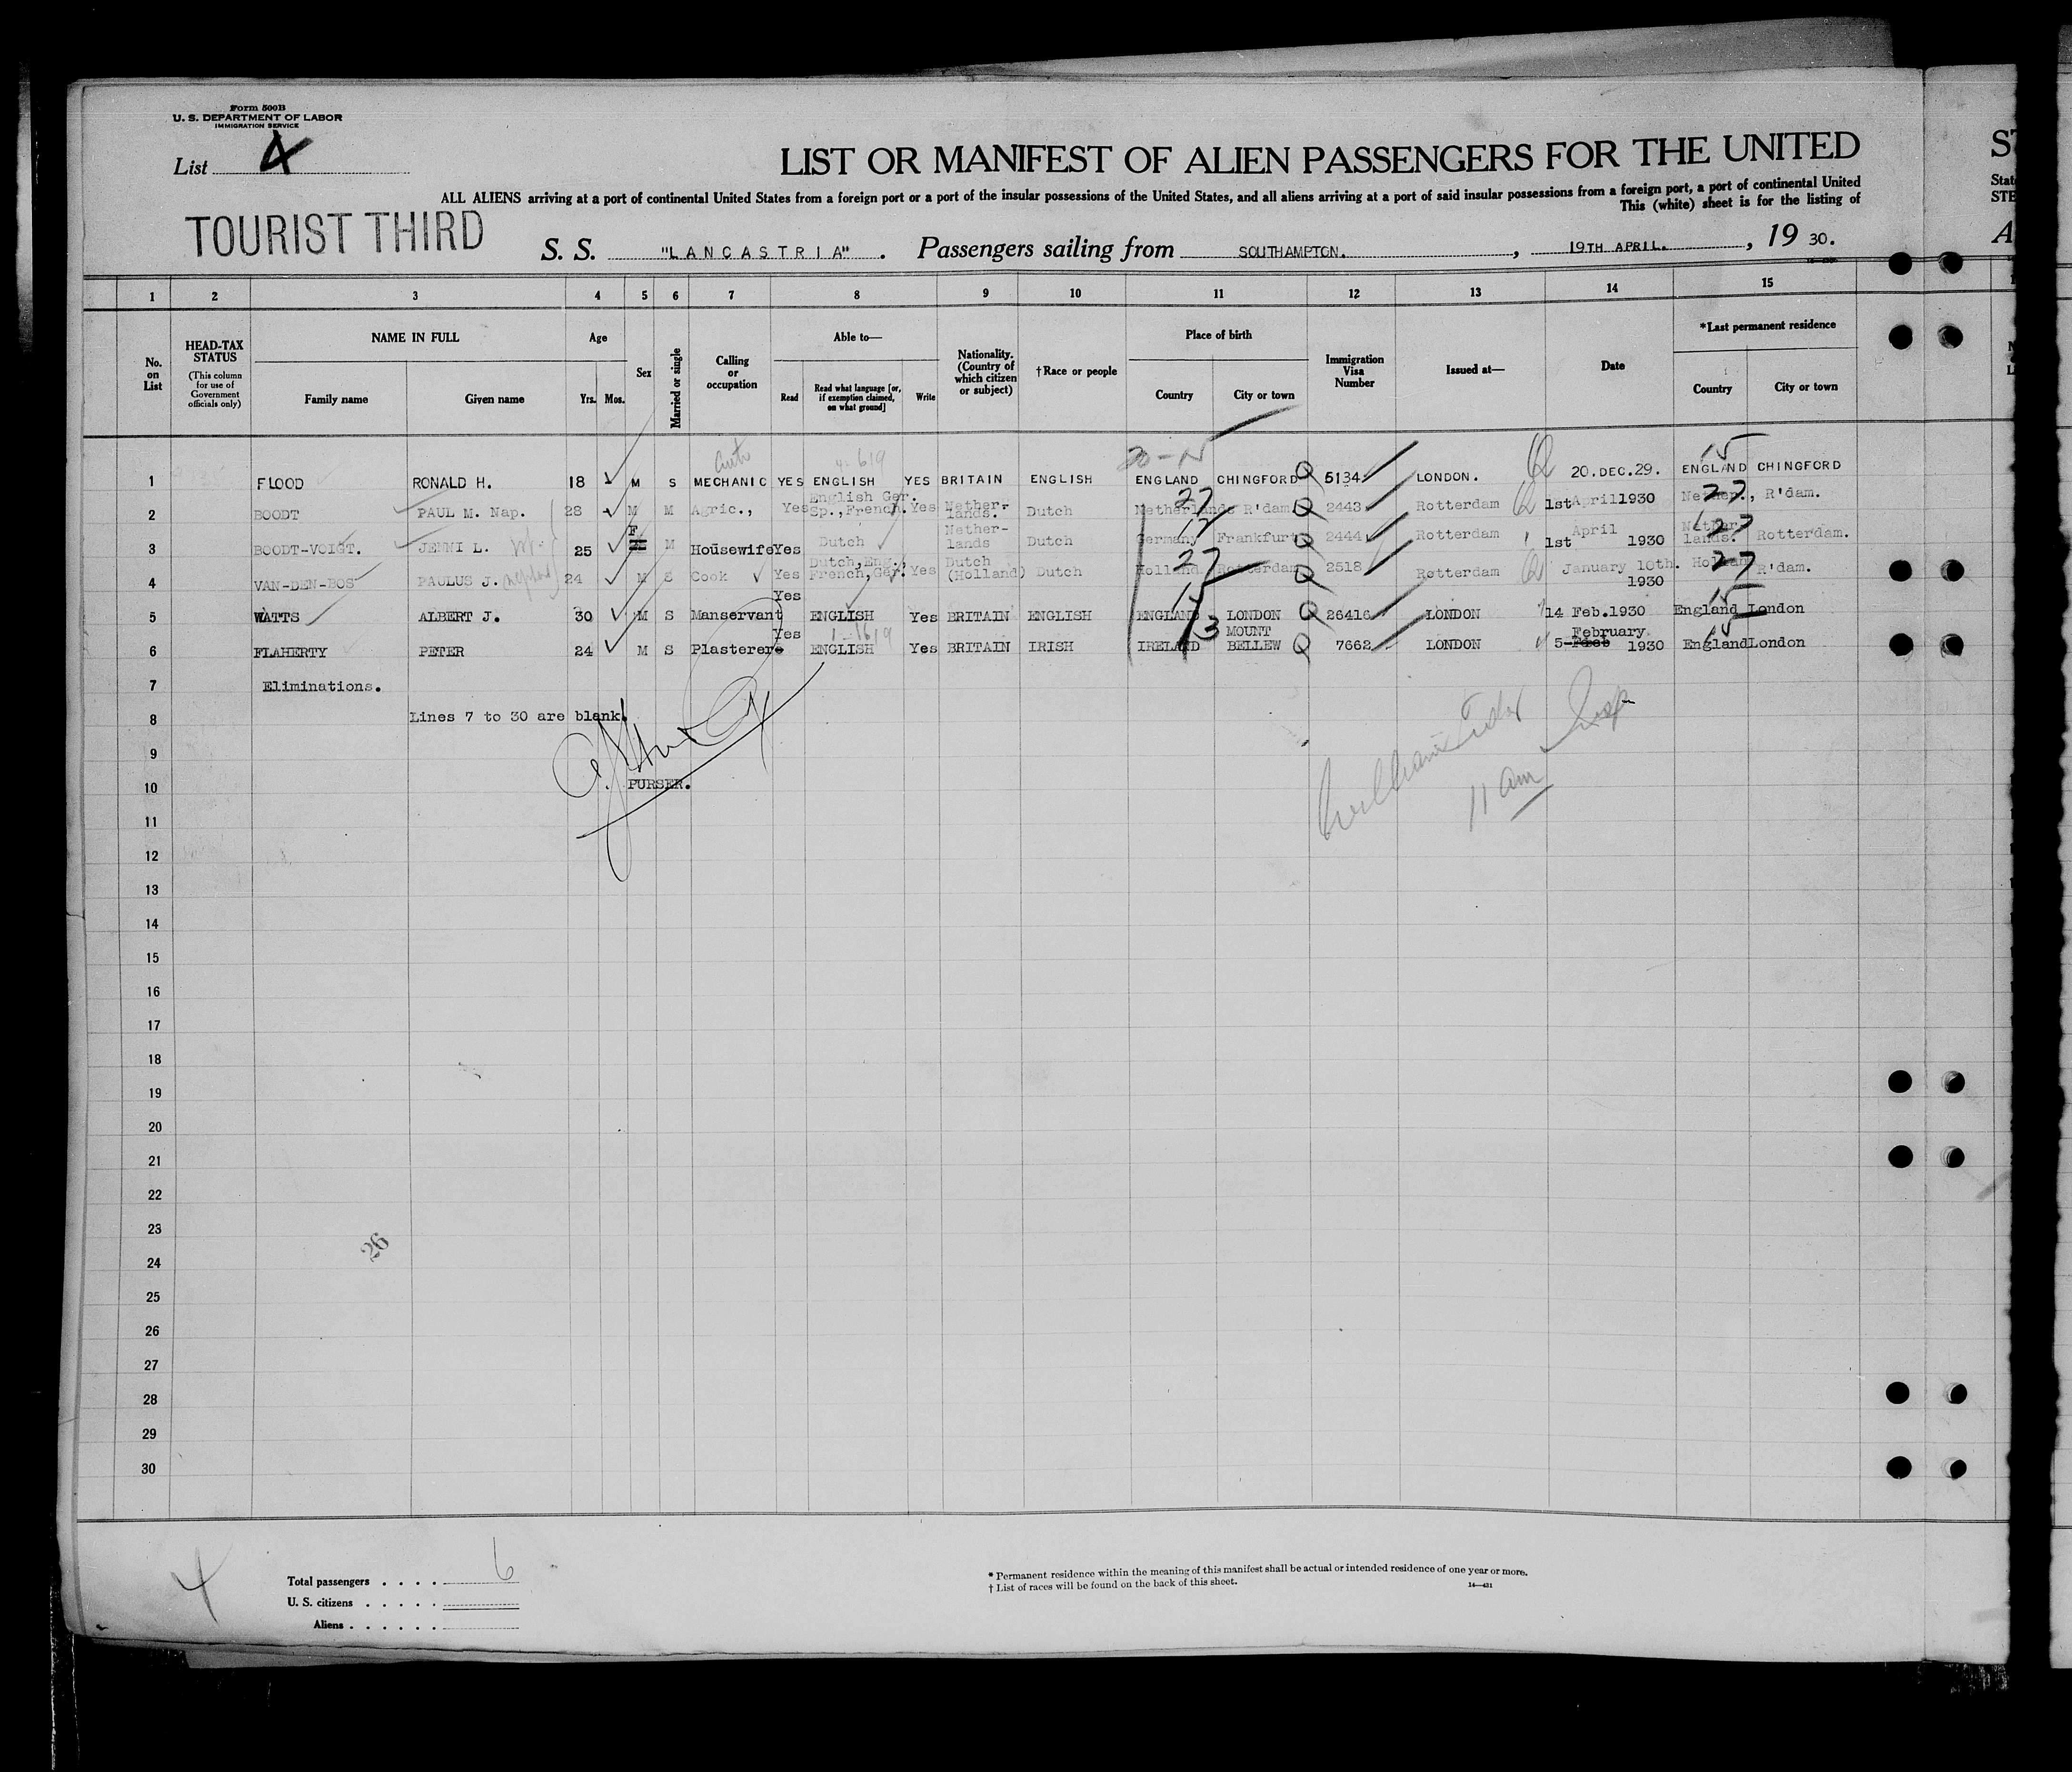 Form 500B
U. S. DEPARTMENT OF LABOR
IMMIGRATION SERVICE
List 4
LIST OR MANIFEST OF ALIEN PASSENGERS FOR THE UNITED
ALL ALIENS arriving at a port of continental United States from a foreign port or a port of the insular possessions of the United States, and all aliens arriving at a port of said insular possessions from a foreign port, a port of continental United
This (white) sheet is for the listing of
TOURIST THIRD
S. S. "LANCASTRIA". Passengers sailing from SOUTHAMPTON. , 19TH APRIL. , 19 30.
1 2 3 4 5 6 7 8 9 10 11 12 13 14 15
No. on List
HEAD-TAX STATUS (This column for use of Government officials only)
NAME IN FULL
Family name
Given name
Age
Yrs. Mos.
Sex
Married or single
Calling or occupation
Able to—
Read
Read what language [or, if exemption claimed, on what ground]
Write
Nationality. (Country of which citizen or subject)
†Race or people
Place of birth
Country
City or town
Immigration Visa Number
Issued at—
Date
*Last permanent residence
Country
City or town
1 FLOOD RONALD H. 18 M S MECHANIC YES ENGLISH YES BRITAIN ENGLISH ENGLAND CHINGFORD Q 5134 LONDON. 20.DEC.29. ENGLAND CHINGFORD
2 BOODT PAUL M. Nap. 28 M M Agric., Yes English Ger. Sp.,French. Yes Nether-lands. Dutch Netherlands R'dam Q 2443 Rotterdam 1st April 1930 Nether., R'dam.
3 BOODT-VOIGT. JENNI L. 25 F M Housewife Yes Dutch Nether-lands Dutch Germany Frankfurt Q 2444 Rotterdam 1st April 1930 Nether-lands. Rotterdam.
4 VAN-DEN-BOS PAULUS J. 24 M S Cook Yes Dutch,Eng., French,Ger. Yes Dutch (Holland) Dutch Holland Rotterdam Q 2518 Rotterdam January 10th. 1930 Holland R'dam.
5 WATTS ALBERT J. 30 M S Manservant Yes ENGLISH Yes BRITAIN ENGLISH ENGLAND LONDON Q 26416 LONDON 14 Feb.1930 England London
6 FLAHERTY PETER 24 M S Plasterer Yes ENGLISH Yes BRITAIN IRISH IRELAND MOUNT BELLEW Q 7662 LONDON 5 February 1930 England London
7 Eliminations.
8 Lines 7 to 30 are blank.
9
10 PURSER.
11 am
11
12
13
14
15
16
17
18
19
20
21
22
23
26
24
25
26
27
28
29
30
4
Total passengers . . . . 6
U. S. citizens . . . . .
Aliens . . . . . .
* Permanent residence within the meaning of this manifest shall be actual or intended residence of one year or more.
† List of races will be found on the back of this sheet.
14—431